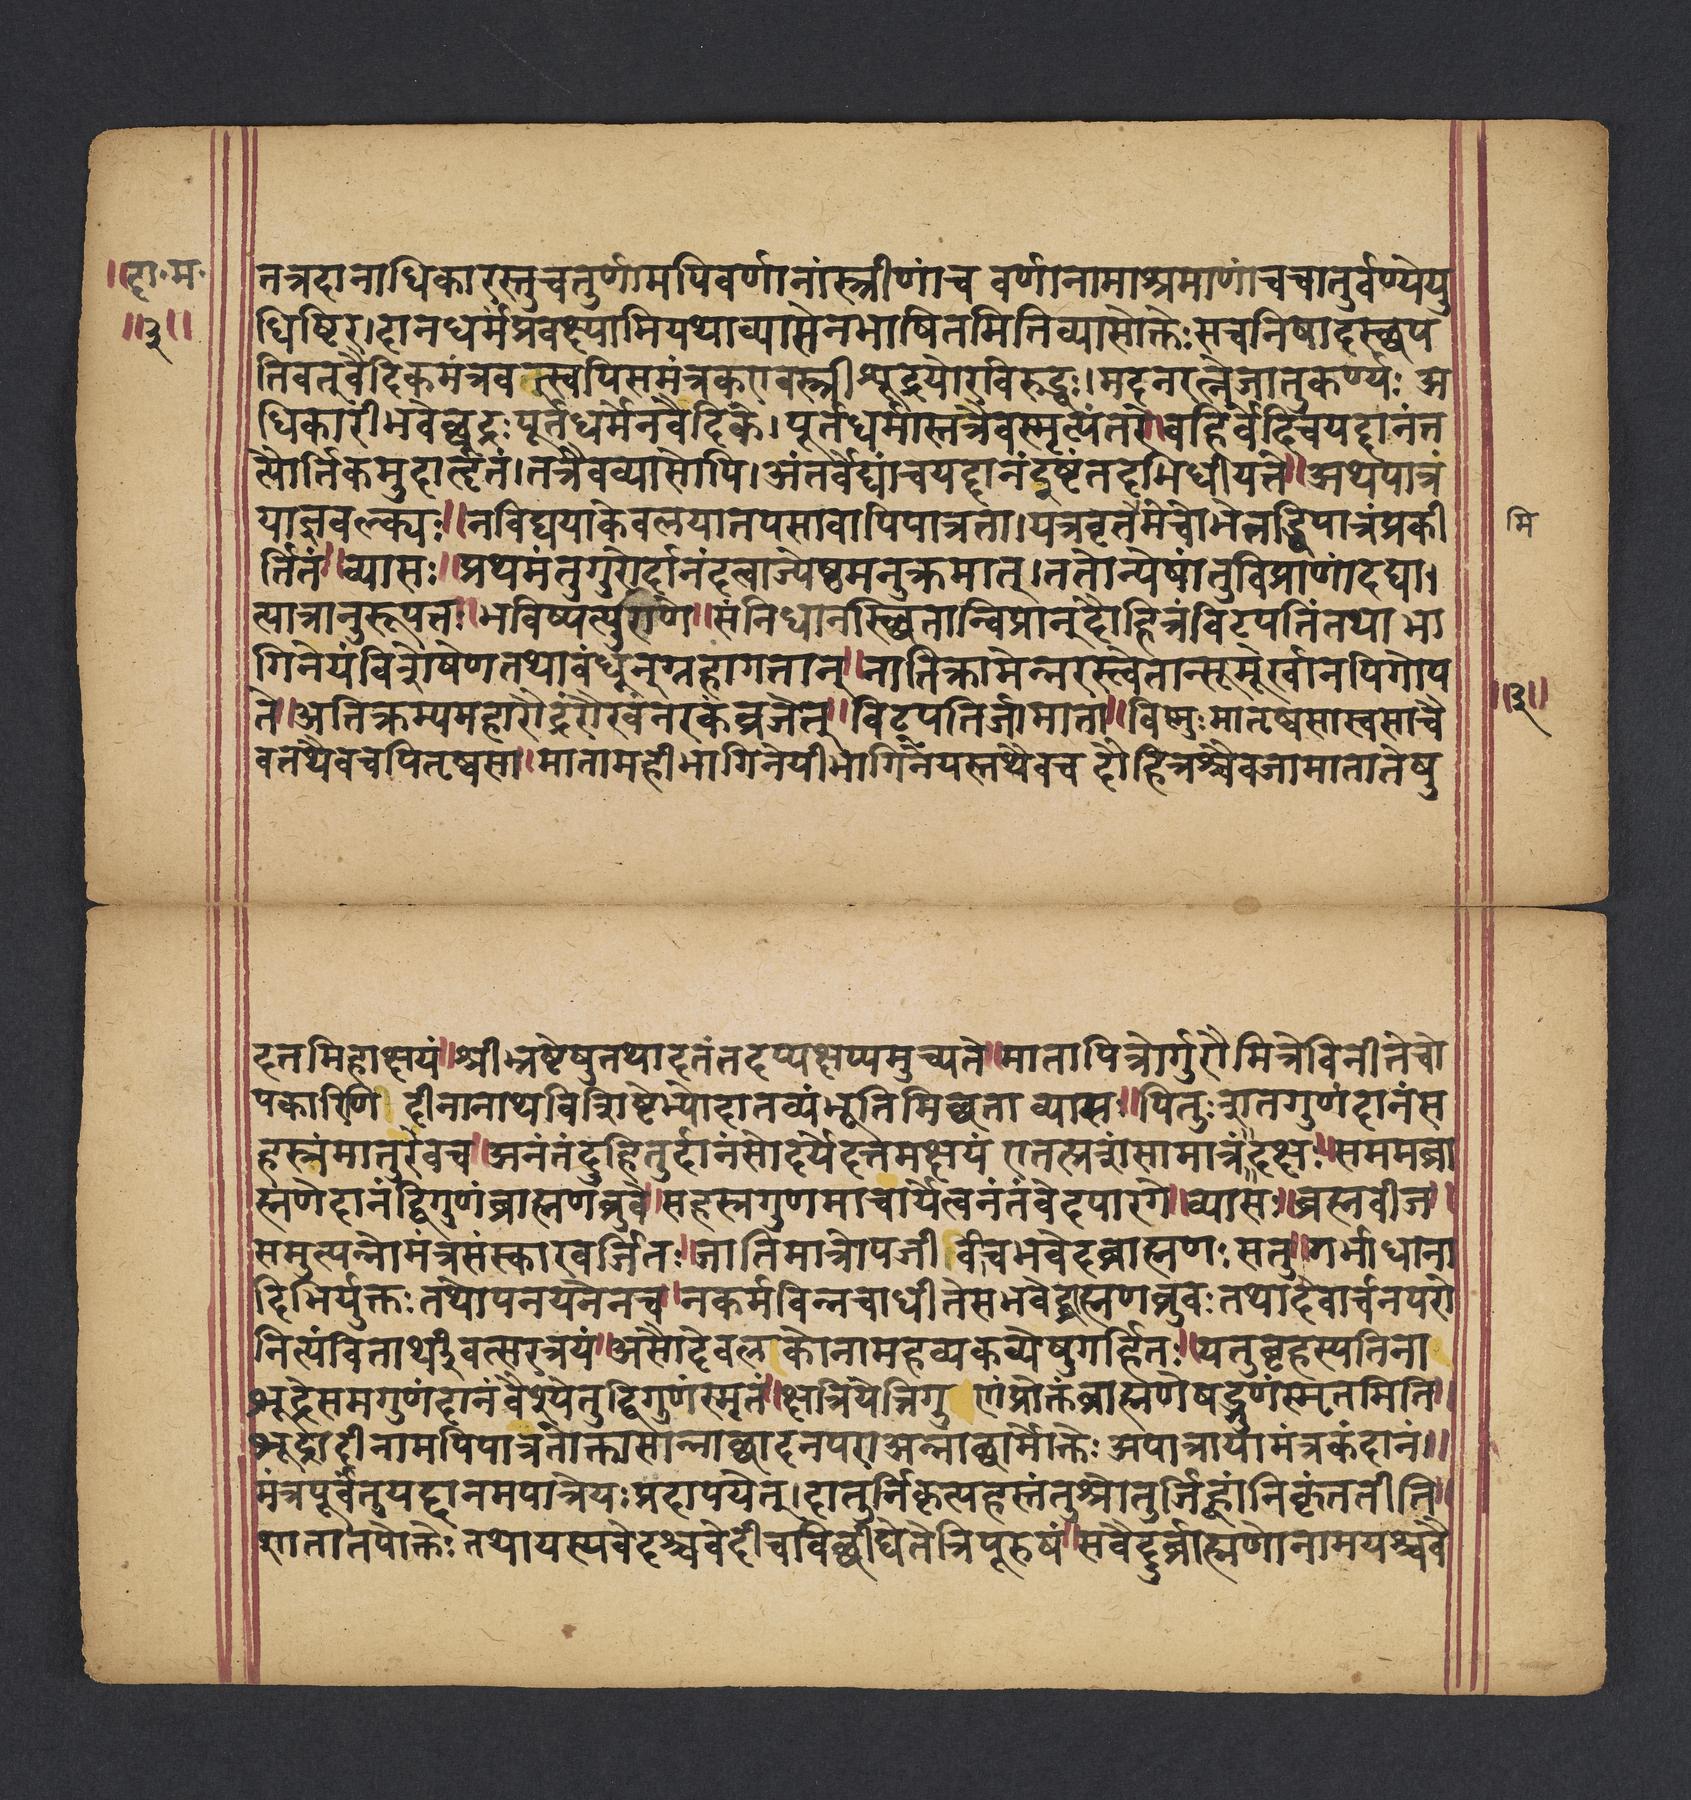 ॥दा॰म॰
॥३॥
तत्रदानाधिकारस्तुचतुर्णामपिवर्णानांस्त्रीणांच वर्णानामाश्रमाणांचचातुर्वर्ण्येयु
धिष्टिर।दानधर्मंप्रवक्ष्यामियथाव्यासेनभाषितमितिव्यासोक्तेःसचनिषादस्थप
तिवतूवैदिकमंत्रवत्स्वपिसमंत्रकएवस्त्रीशूद्रयोरविरुद्धः।मदनरत्नेजातुकर्ण्यः अ
धिकारीभवेछूद्रःपूर्तेधर्मेनवैदिके।पूर्तधर्मास्तत्रैवस्मृत्यंतरे॥बहिर्वेदिचयद्दानंत
त्पौर्तिकमुदाहृतं।तत्रैवव्यासोपि।अंतर्वेद्यांचयद्दानंदृष्टंतदभिधीयते॥अथपात्रं
याज्ञवल्क्यः॥नविद्ययाकेवलयातपसावापिपात्रता।यत्रवृत्तमिमेचोभेतद्धिपात्रंप्रकी
र्तितं॥व्यासः॥प्रथमंतुगुरोर्दानंदत्वाज्येष्ठमनुक्रमात्।ततोन्येषांतुविप्राणांदद्या।
त्पात्रानुरूपतः॥भविष्यत्पुराणे॥संनिधानस्थितान्विप्रान्दौहित्रंविट्पतिंतथा भा
गिनेयंविशेषेणतथाबंधून्गृहागतान्॥नातिक्रामेन्नरस्त्वेतान्सूमूर्खानपिगोप
ते॥अतिक्रम्यमहारौद्रंरौरवंनरकंव्रजेत्॥विट्पतिर्जामाता॥विष्णुःमातृष्वसास्वसाचै
वतथैवचपितृष्वसा।मातामहीभागिनेयीभागिनेयस्तथैवच दौहित्रश्चैवजामातातेषु
मि
॥३॥
दत्तमिहाक्षयं॥श्रीभ्रष्टेषुतथादत्तंतदप्यक्षय्यमुच्यते॥मातापित्रोर्गुरौमित्रेविनीतेचो
पकारिणि दीनानाथविशिष्टेभ्योदातव्यंभूतिमिछता व्यासः॥पितुःशतगुणंदानंस
हस्त्रंमातुरेवच॥अनंतंदुहितुर्दानंसोदर्येदत्तमक्षयं एतत्प्रशंसामात्रं॥दक्षः॥सममब्रा
ह्मणेदानंद्विगुणंब्राह्मणब्रुवे॥सहस्त्रगुणमाचार्येत्वनंतंवेदपारगे॥व्यासः॥ब्रह्मबीज॥
समुत्पन्नोमंत्रसंस्कारवर्जितः॥जातिमात्रोपजीवीचभवेदब्राह्मणः सतु॥गर्भाधाना
दिभिर्युक्तः तथोपनयनेनच॥नकर्मविन्नचाधीतेसभवेद्ब्राह्मणब्रुवः तथादेवार्चनपरो
नित्यंवित्तार्थीवत्सरत्रयं॥असौदेवलकोनामहव्यकव्येषुगर्हितः॥यत्तुबृहस्पतिना
शूद्रेसमगुणंदानंवैश्येतुद्विगुणंस्मृतं॥क्षत्रियेत्रिगुणंप्रोक्तंब्राह्मणेषड्गुणंस्मृतमिति॥
शूद्रादीनामपिपात्रतोक्तासान्नाछादनपरा अन्नाछार्मोक्तेः अपात्रायामंत्रकंदानं॥
मंत्रपूर्वंतुयद्दानमपात्रेयः प्रदापयेत्।दातुर्निकृत्यहस्तंतुश्रोतुर्जिह्वांनिकृंततीति॥
शातातपोक्तेः तथायस्यवेदश्चवेदीचविछीद्येतेत्रिपूरुषं॥सवैदुर्ब्राह्मणोनामयश्चवै